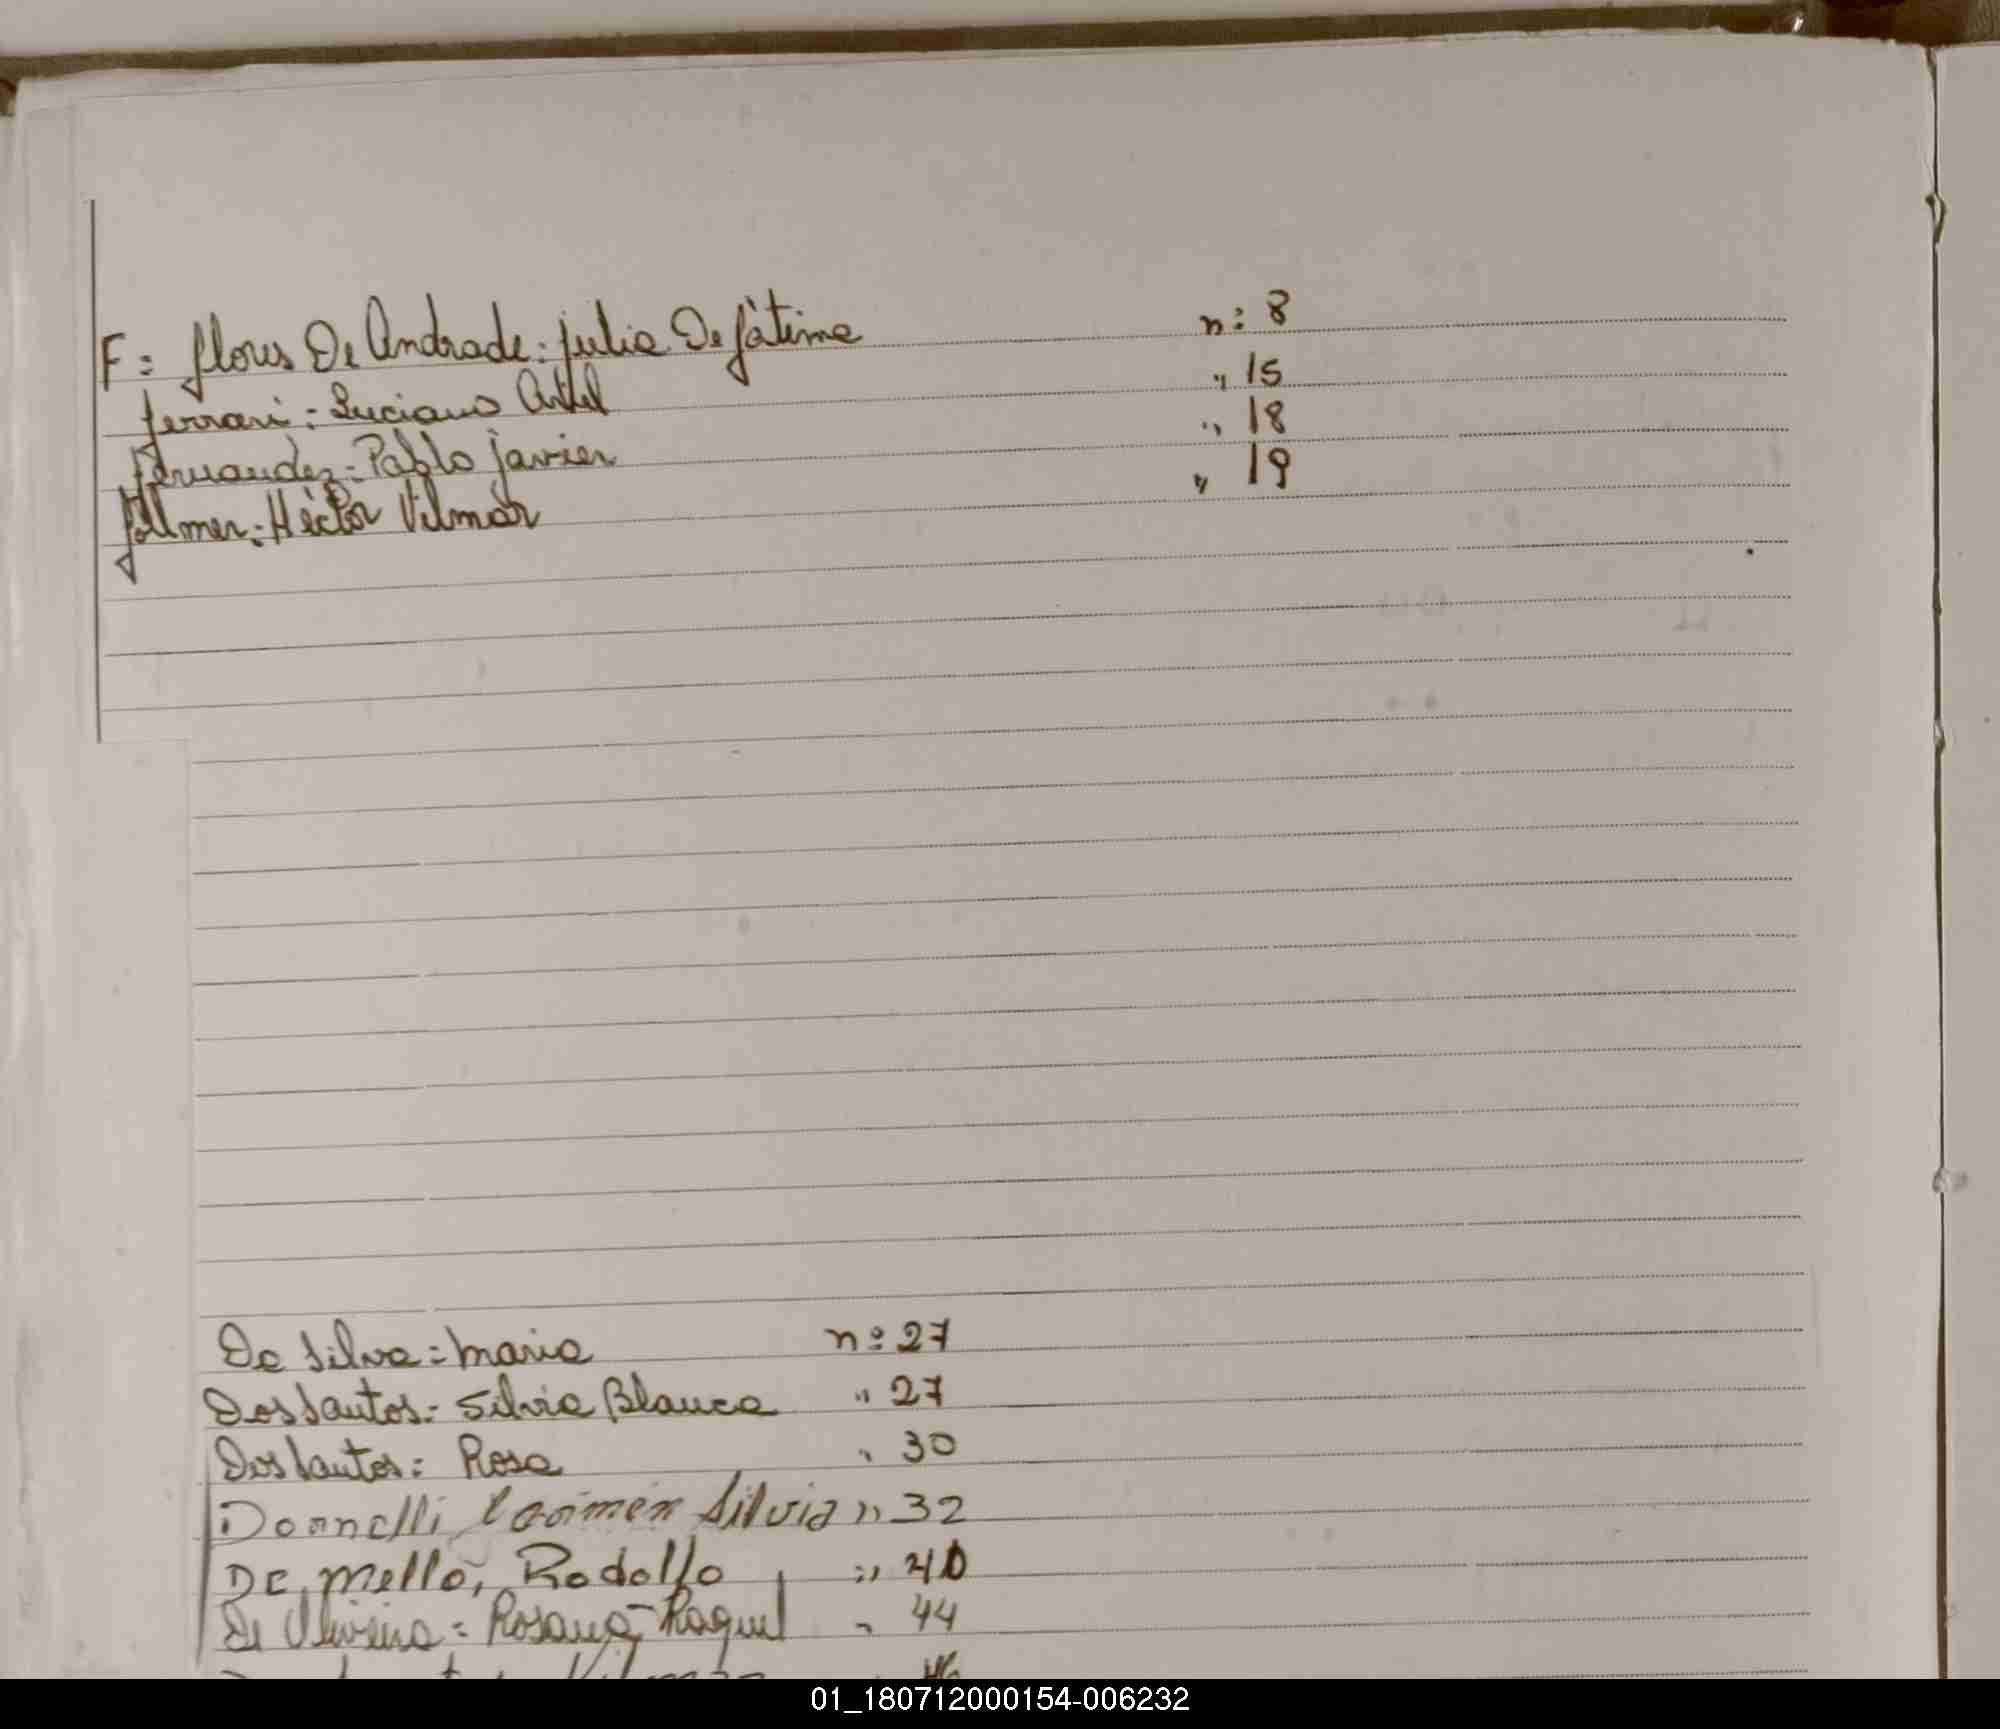 F: flores De Andrade: julia De fàtima n: 8
ferrari: Luciano " 15
fernandez: Pablo javier " 18
follmer: Hèctor Vilmar " 19
Da Silva: maria n: 27
Dos Santos: Silvia Blanca " 27
Dos Santos: Rosa " 30
Donnelli, Carmen Silvia " 32
De, mello, Rodolfo " 40
De Oliveira: Rosana Raquel " 44
46
01_180712000154-006232